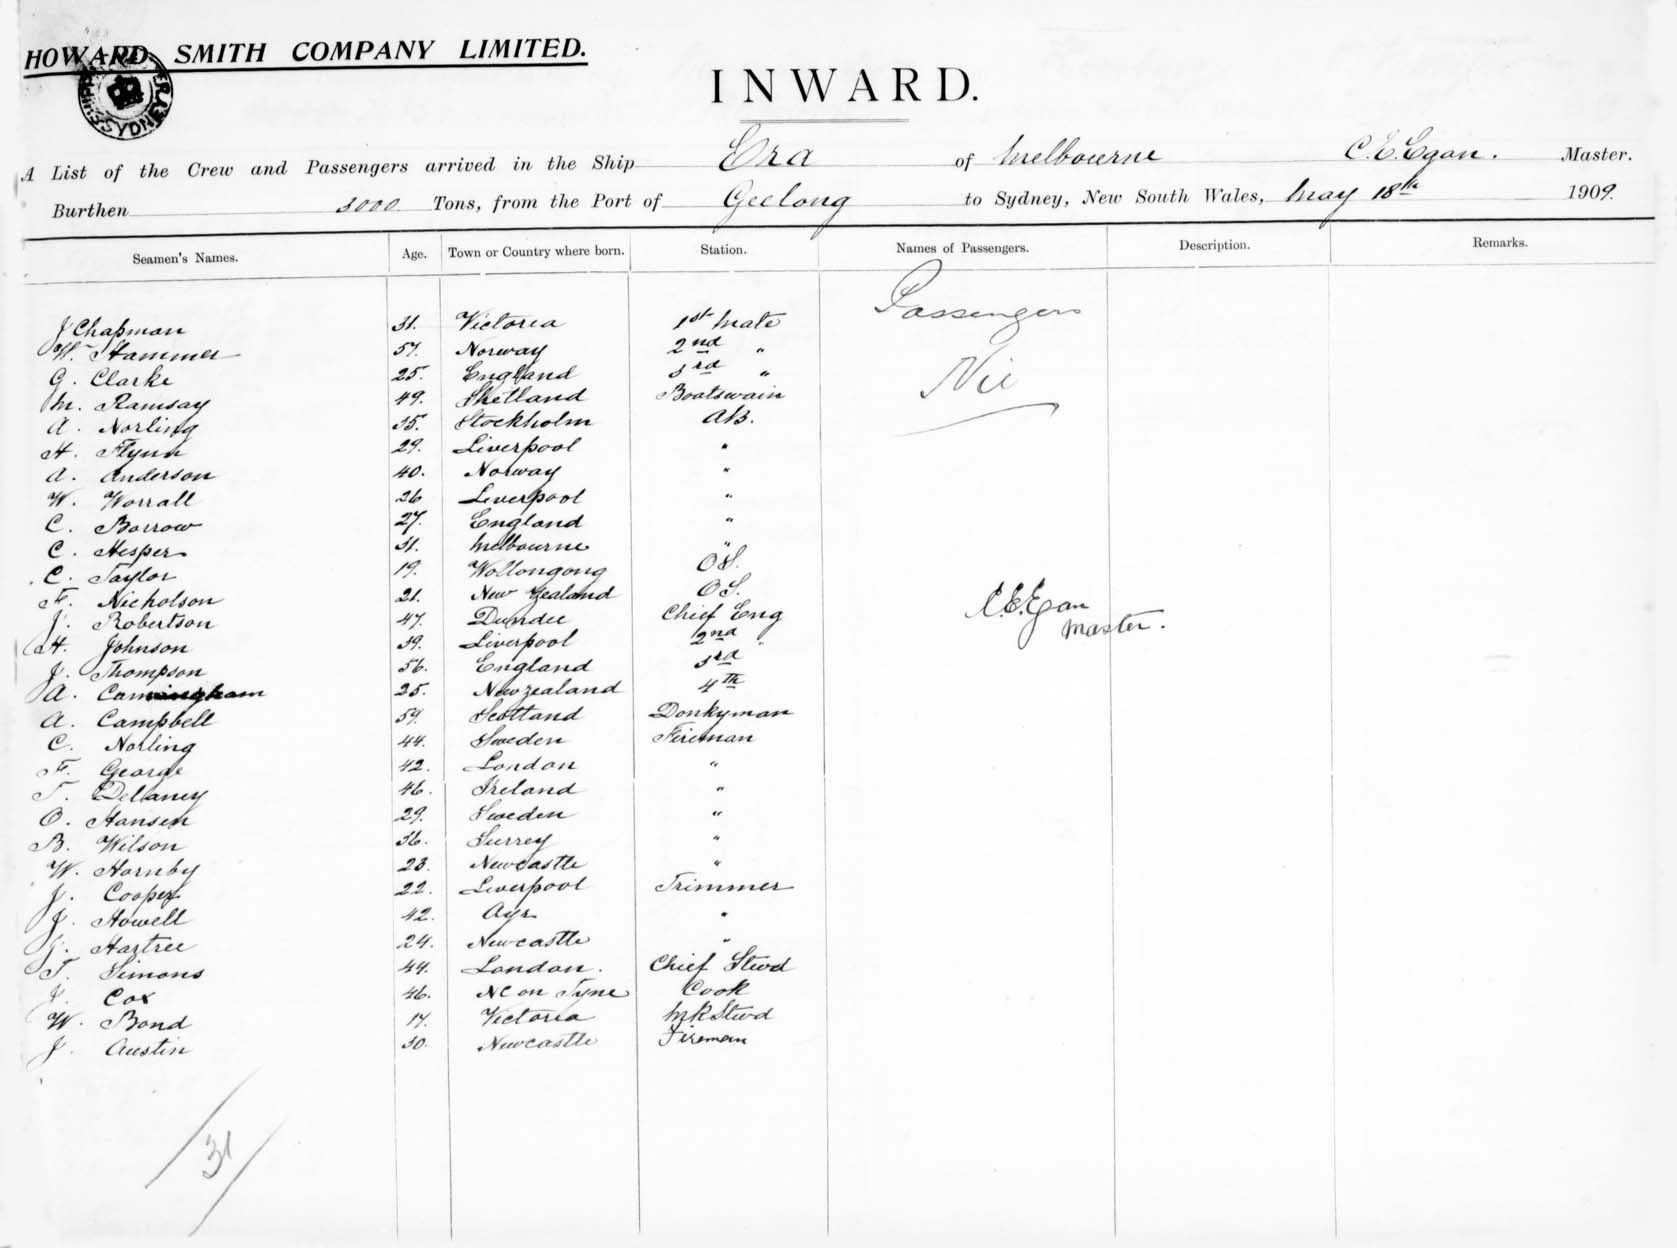 HOWARD SMITH COMPANY LIMITED.
SYDNEY
INWARD.
A List of the Crew and Passengers arrived in the Ship Era of Melbourne C.E.Egan. Master.
Burthen 3000 Tons, from the Port of Geelong to Sydney, New South Wales, May 18th 1909.
Seamen's Names. Age. Town or Country where born. Station. Names of Passengers. Description. Remarks.
Passengers
Nil
J Chapman 31. Victoria 1st Mate
W. Hammer 57. Norway 2nd "
G. Clarke 25. England 3rd "
M. Ramsay 49. Shetland Boatswain
A. Norling 35. Stockholm AB.
H. Flynn 29. Liverpool "
A. Anderson 40. Norway "
W. Worrall 26 Liverpool "
C. Borrow 27. England "
C. Hesper 31. Melbourne "
C. Taylor 19. Wollongong OS.
F. Nicholson 21. New Zealand OS.
J. Robertson 47. Dundee Chief Eng
H. Johnson 39. Liverpool 2nd "
J. Thompson 56. England 3rd
A. Cunningham 25. New Zealand 4th
A. Campbell 59. Scotland Donkyman
C. Norling 44. Sweden Fireman
F. George 42. London "
T. Delaney 46. Ireland "
O. Hansen 29. Sweden "
B. Wilson 36. Surrey "
W. Hornby 23. Newcastle "
J. Cooper 22. Liverpool Trimmer
J. Howell 42. Ayr "
J. Hartree 24. Newcastle "
T. Simons 44. London. Chief Stwd
J. Cox 46. NC on Tyne Cook
W. Bond 17. Victoria MR Stwd
J. Austin 30. Newcastle Fireman
C.E.Egan
Master.
31